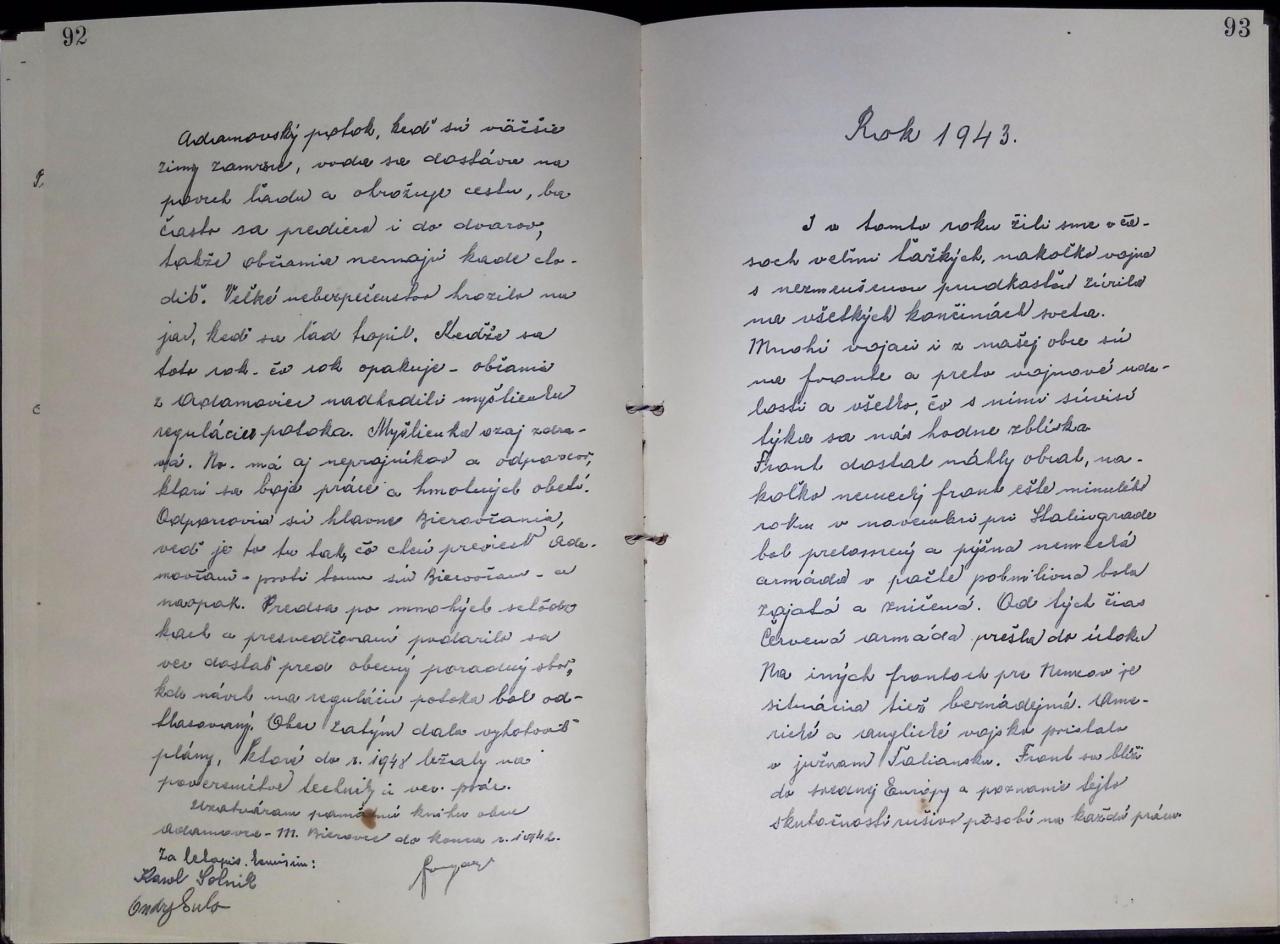 92
Adamovský potok, keď sú väčšie
zimy zamrzne, voda sa dostáva na
povrch ľadu a ohrožuje cestu, ba
často sa prediera i do dvorov,
takže občania nemajú kade cho-
diť. Veľké nebezpečenstvo hrozilo na
jar, keď sa ľad topil. Keďže sa
toto rok-čo rok opakuje - občania
z Adamoviec nadhodili myšlienku
regulácie potoka. Myšlienka ozaj zdra-
vá. No má aj neprajníkov a odporcov,
ktorí sa boja práce a hmotných obetí.
Odporcovia sú hlavne Bierovčania,
veď je to tu tak, čo chcú previesť Ada-
movčani - proti tomu sú Bierovčan - a
naopak. Predsa po mnohých schôdz-
kach a presvedčovaní podarilo sa
vec dostať pred obecný poradný sbor,
kde návrh na reguláciu potoka bol od-
hlasovaný. Obec zatým dala vyhotoviť
plány, ktoré do r. 1948 ležaly na
povereníctve techniky a ver. prác.
Uzatváram pamätnú knihu obce
Adamovce - M. Bierovce do konca r. 1942.
Za letopis. komisiu:
Karol Solník
93
Rok 1943.
I v tomto roku žili sme v ča-
soch veľmi ťažkých, nakoľko vojna
s nezmenšenou prudkosťou zúrila
na všetkých končinách sveta.
Mnohí vojaci i z našej obce sú
na fronte a preto vojnové uda-
losti a všetko, čo s nimi súvisí
týka sa nás hodne zblízka
Front dostal náhly obrat, na-
koľko nemecký front ešte minulého
roku v novembri pri Stalingrade
bol prelomený a pýšna nemecká
armáda v počte polmiliona bola
zajatá a zničená. Od tých čias
Červená armáda prešla do útoku
Na iných frontoch pre Nemcov je
situácia tiež beznádejná. Ame-
rické a anglické vojsko pristalo
v južnom Taliansku. Front sa blíži
do srednej Európy a poznanie tejto
skutočnosti rušivo pôsobí na každú prácu